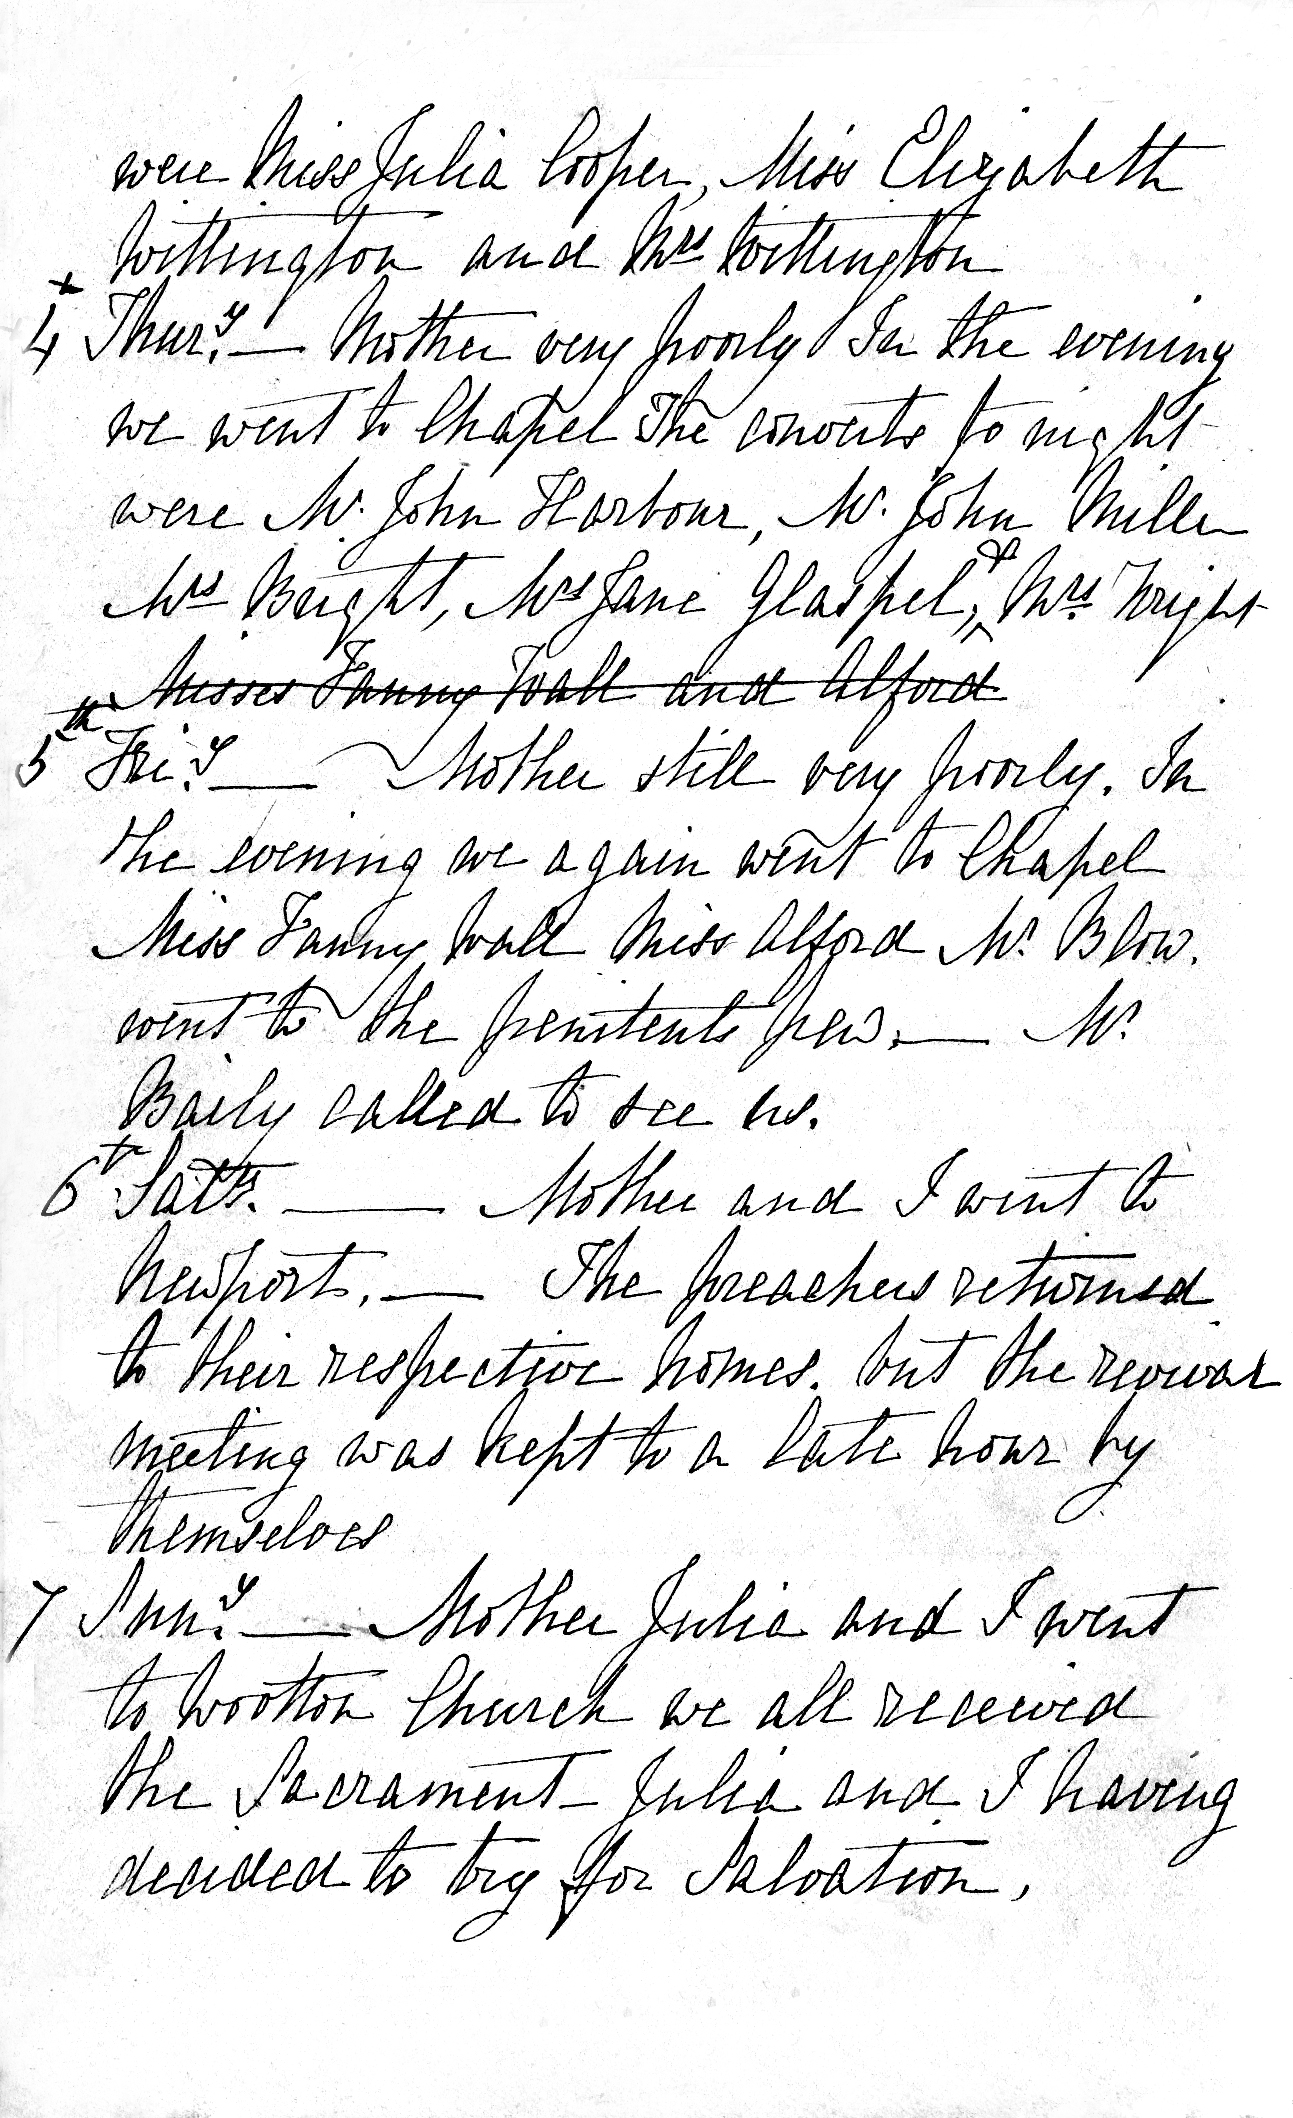 were Miss Julia Cooper, Miss Elizabeth
Wittington and Mrs Wittington
4 Thurs.y — Mother very poorly In the evening
we went to Chapel The converts to night
were Mr. John Harbour, Mr. John Miller
Mrs Bright, Mrs Jane Glaspel, & Mrs. Wright
Misses Fanny Wall and Alford
5th Fri.y — Mother still very poorly. In
the evening we again went to Chapel
Miss Fanny Wall Miss Alford Mr. Blow.
went to the penitents pew. — Mr
Baily called to see us.
6th Satr. — Mother and I went to
Newport. — The preachers returned
to their respective homes. but the revival
meeting was kept to a late hour by
themselves
7 Sun.y — Mother Julia and I went
to Wootton Church we all received
the Sacrament — Julia and I having
decided to try for Salvation,